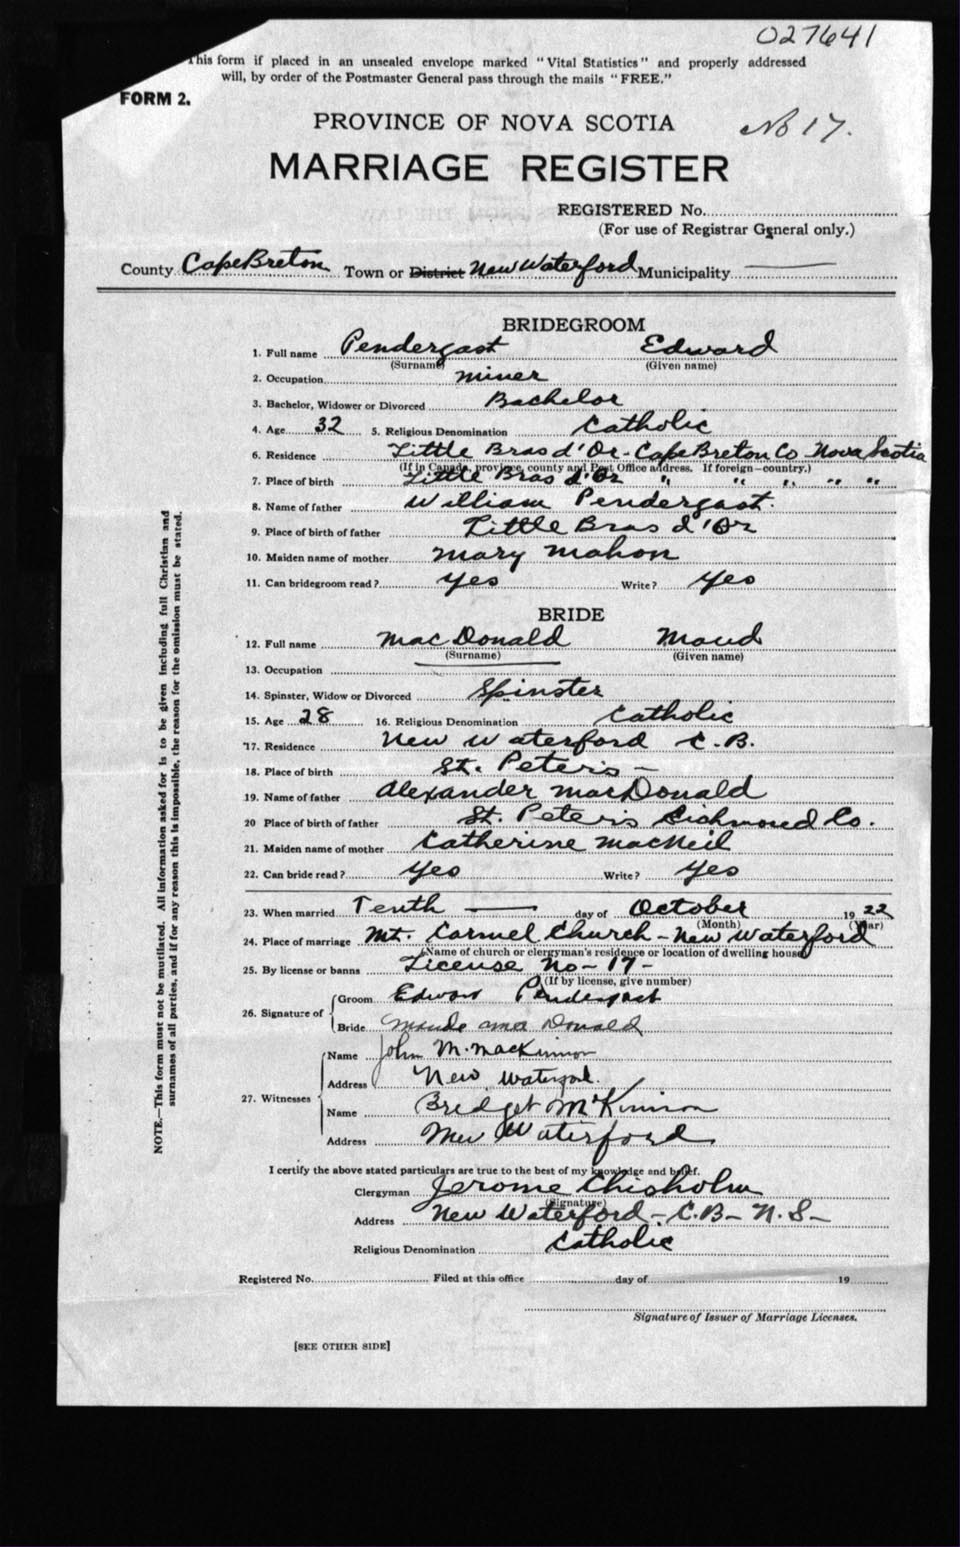 027641
This form if placed in an unsealed envelope marked "Vital Statistics" and properly addressed
will, by order of the Postmaster General pass through the mails "FREE."
FORM 2.
PROVINCE OF NOVA SCOTIA
No 17.
MARRIAGE REGISTER
REGISTERED No.
(For use of Registrar General only.)
County Cape Breton Town or District New Waterford Municipality
BRIDEGROOM
1. Full name Pendergast Edward
(Surname) (Given name)
2. Occupation miner
3. Bachelor, Widower or Divorced Bachelor
4. Age 32 5. Religious Denomination Catholic
6. Residence Little Bras d'Or - Cape Breton Co Nova Scotia
(If in Canada, province, county and Post Office address. If foreign—country.)
7. Place of birth Little Bras d'Or " " " " "
8. Name of father William Pendergast.
9. Place of birth of father Little Bras d'Or
10. Maiden name of mother mary mahon
11. Can bridegroom read? yes Write? yes
BRIDE
12. Full name MacDonald Maud
(Surname) (Given name)
13. Occupation
14. Spinster, Widow or Divorced Spinster
15. Age 28 16. Religious Denomination Catholic
17. Residence New Waterford C.B.
18. Place of birth St. Peter's -
19. Name of father Alexander MacDonald
20 Place of birth of father St. Peter's Richmond Co.
21. Maiden name of mother Catherine MacNeil
22. Can bride read? yes Write? yes
23. When married Tenth day of October 1922
(Month) (Year)
24. Place of marriage Mt. Carmel Church - New Waterford
(Name of church or clergyman's residence or location of dwelling house)
25. By license or banns License No - 17 -
(If by license, give number)
26. Signature of Groom Edward Pendergast
Bride Maude MacDonald
27. Witnesses Name John M. MacKinnon
Address New Waterford.
Name Bridget McKinnon
Address New Waterford
I certify the above stated particulars are true to the best of my knowledge and belief.
Clergyman Jerome Chisholm
(Signature)
Address New Waterford - C.B - N.S -
Religious Denomination Catholic
Registered No. Filed at this office day of 19
Signature of Issuer of Marriage Licenses.
[SEE OTHER SIDE]
NOTE.—This form must not be mutilated. All information asked for is to be given including full Christian and
surnames of all parties, and if for any reason this is impossible, the reason for the omission must be stated.